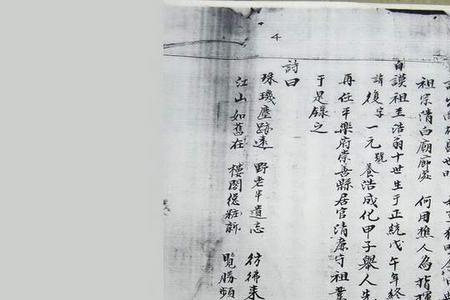 祖宗清白廟廊處 何用樵人為指
自謨祖至浩翁十世生于正統戊午年終
諱復字一元號養浩成化甲子舉人
再任平樂府崇善縣居官清廉守祖業
于是錄之
詩曰
珠璣塵跡遠 野老半遺志 彷彿來
江山如舊在 樓閣復粧新 覽勝頻